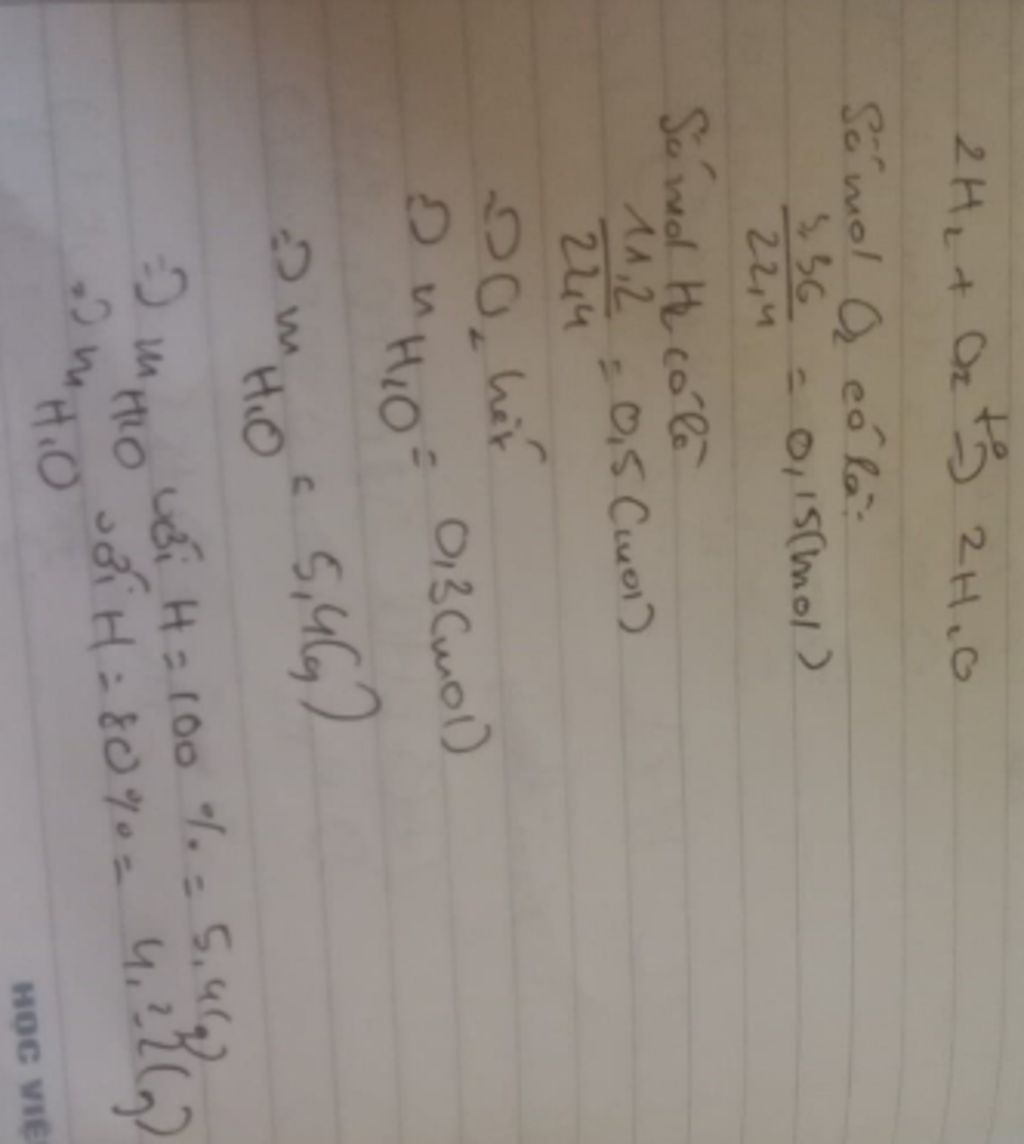 2H₂ + O₂ t° → 2H₂O
Số mol O₂ có là:
3,36/22,4 = 0,15(mol)
Số mol H₂ có là
11,2/22,4 = 0,5(mol)
⇒ O₂ hết
⇒ n H₂O = 0,3(mol)
⇒ m H₂O = 5,4(g)
⇒ m H₂O với H = 100% = 5,4(g)
⇒ m H₂O với H = 80% =
HỌC VIỆ